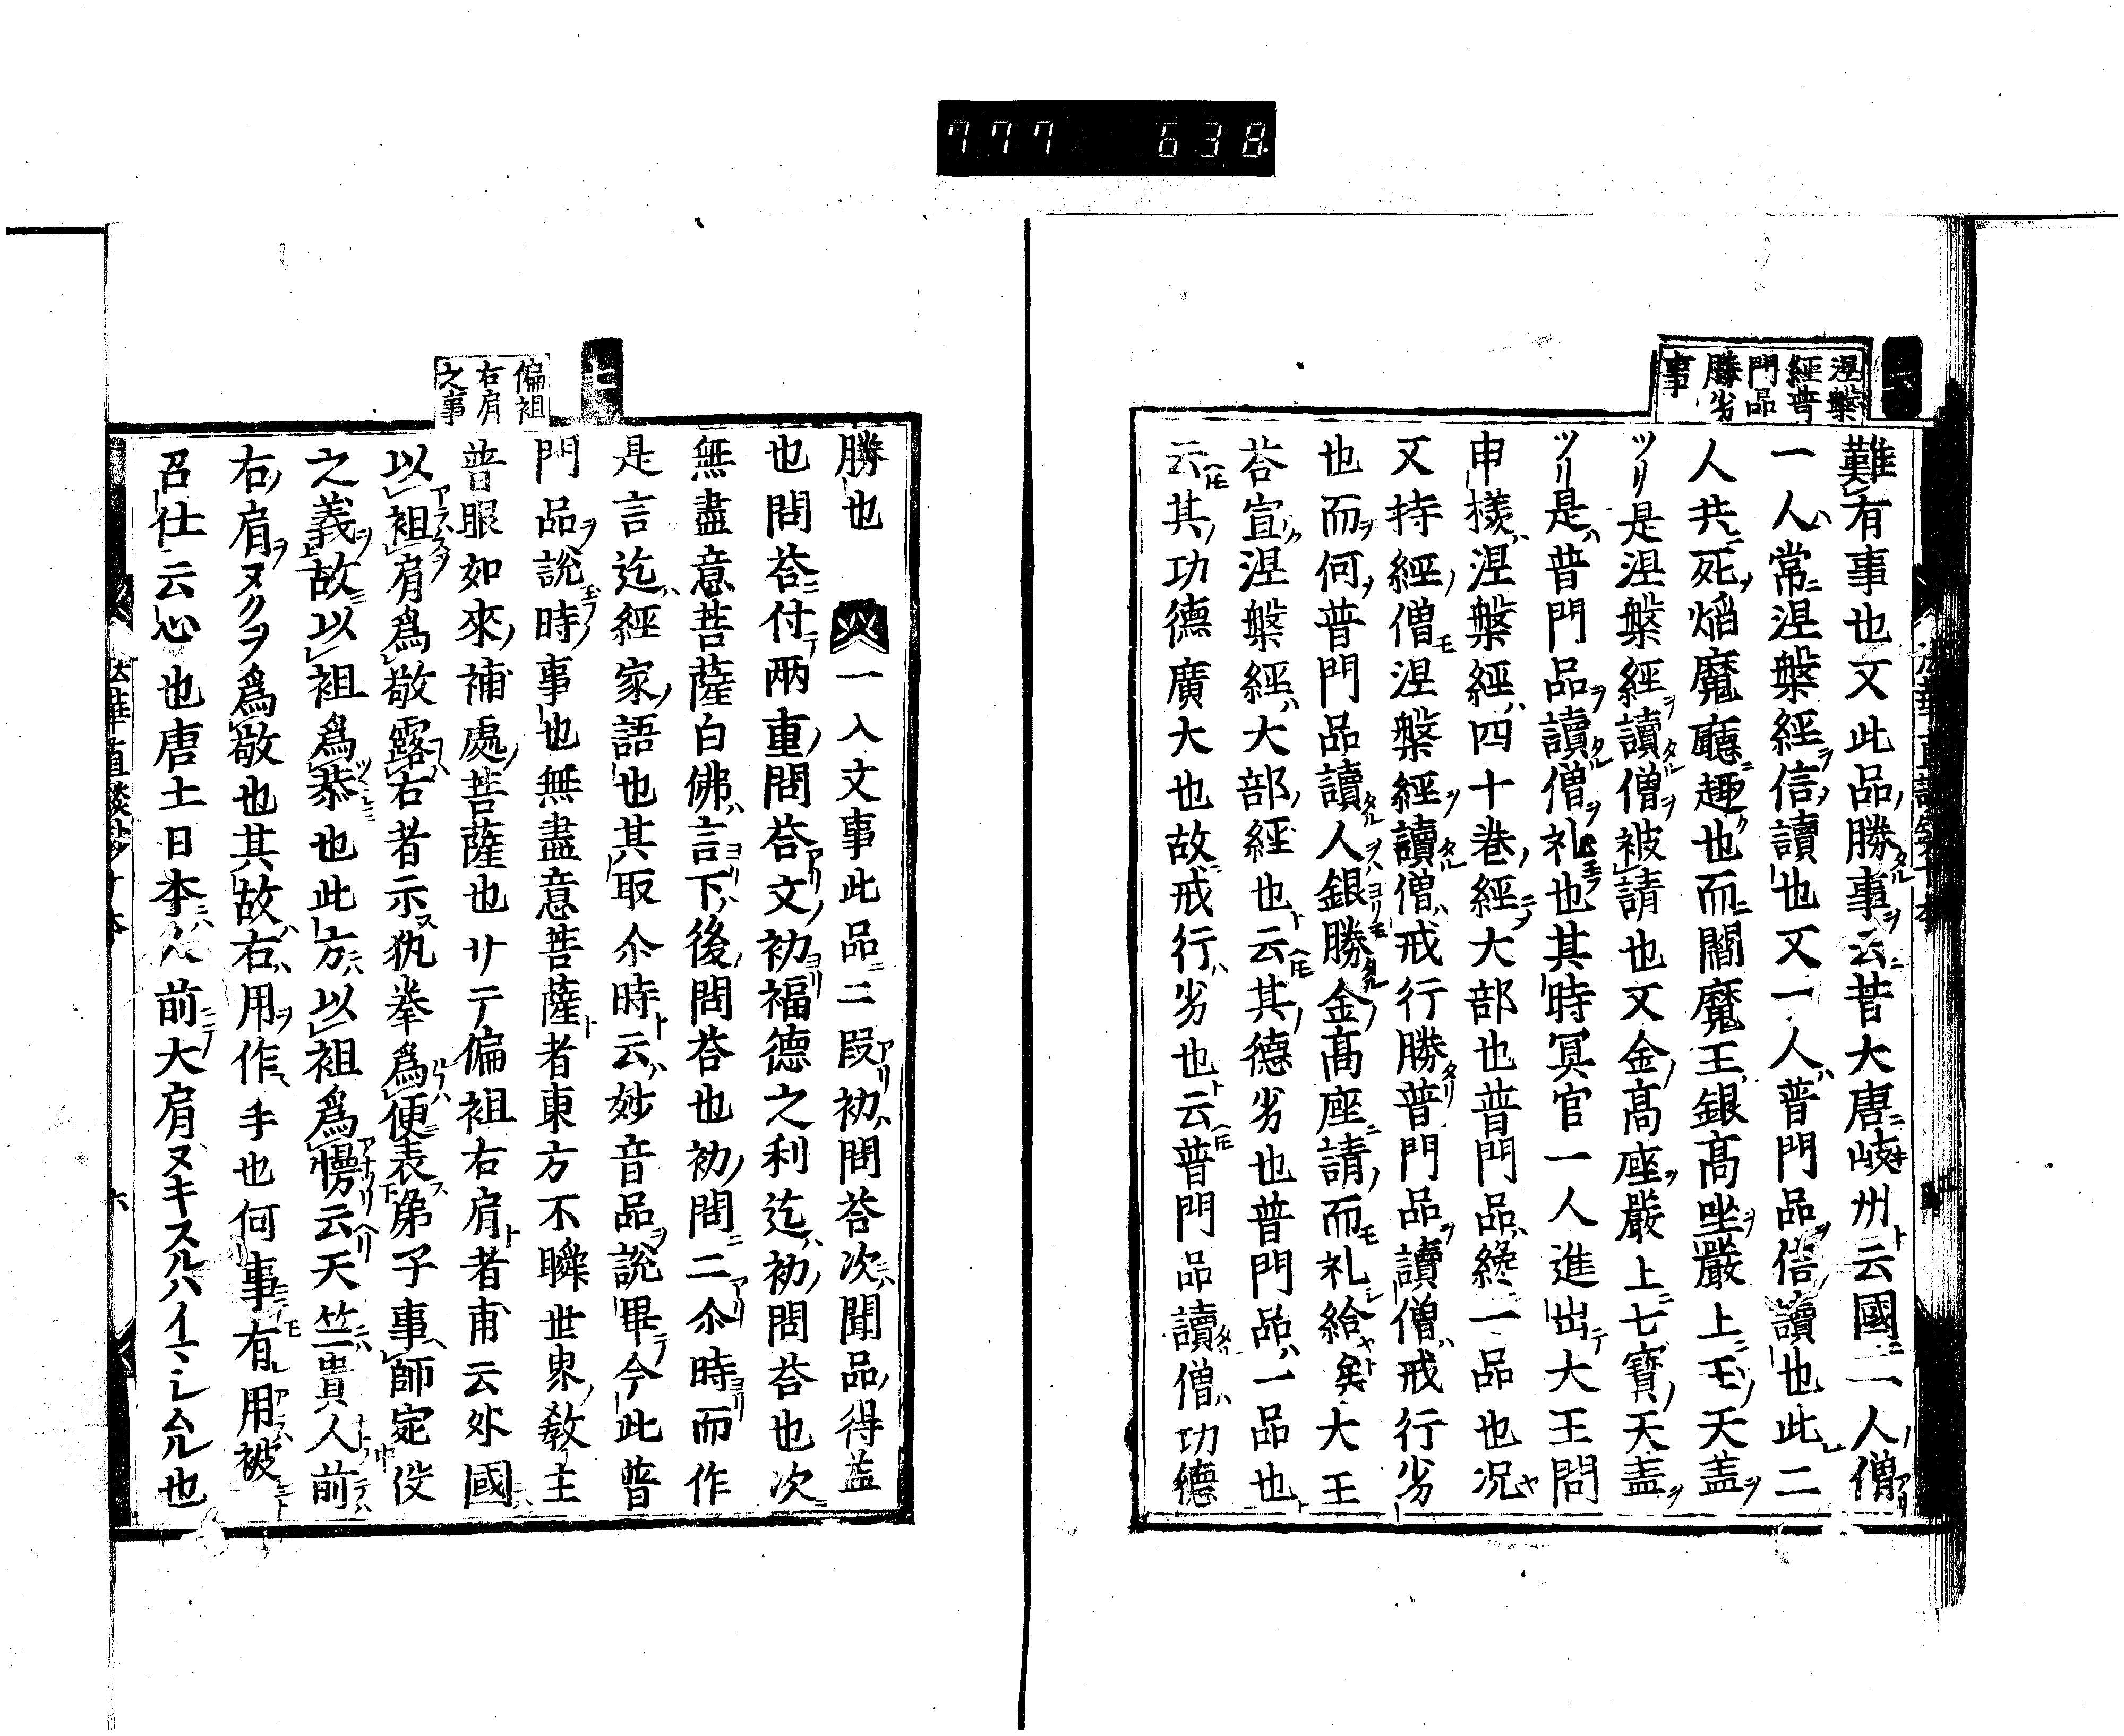 777 638
涅槃
經普
門品
勝劣
事
難有事也又此品勝事云昔大唐岐州云國二人僧
一人常涅槃經信讀也又一人普門品信讀也此二
人共死焔魔廳趣也而閻魔王銀髙坐嚴上玉天盖
ツリ是涅槃經讀僧被請也又金髙座嚴上七寳天盖
ツリ是普門品讀僧礼也其時冥官一人進出大王問
申樣涅槃經四十巻經大部也普門品纔一品也况
又持經僧涅槃經讀僧戒行勝普門品讀僧戒行劣
也而何普門品讀人銀勝金髙座請而礼給矣大王
荅宣涅槃經大部経也云其德劣也普門品一品也
云其功德廣大也故戒行劣也云普門品讀僧功德
偏袒
右肩
之事
勝也 一入文事此品二段初問荅次聞品得益
也問荅付兩重問荅文初福德之利迄初問荅也次
無盡意菩薩白佛言下後問荅也初問二尒時而作
是言迄經家語也其取尒時云妙音品說畢今此普
門品說時事也無盡意菩薩者東方不瞬世界教主
普眼如來補處菩薩也サテ偏袒右肩者甫云外國
以袒肩爲敬露右者示執奉爲便表弟子事師定役
之義故以袒爲恭也此方以袒爲慢云天竺貴人前
右肩ヌクヲ爲敬也其故右用作手也何事有用被
召仕云心也唐土日本人前大肩ヌキスルハイマシムル也
法華直談鈔十本
六